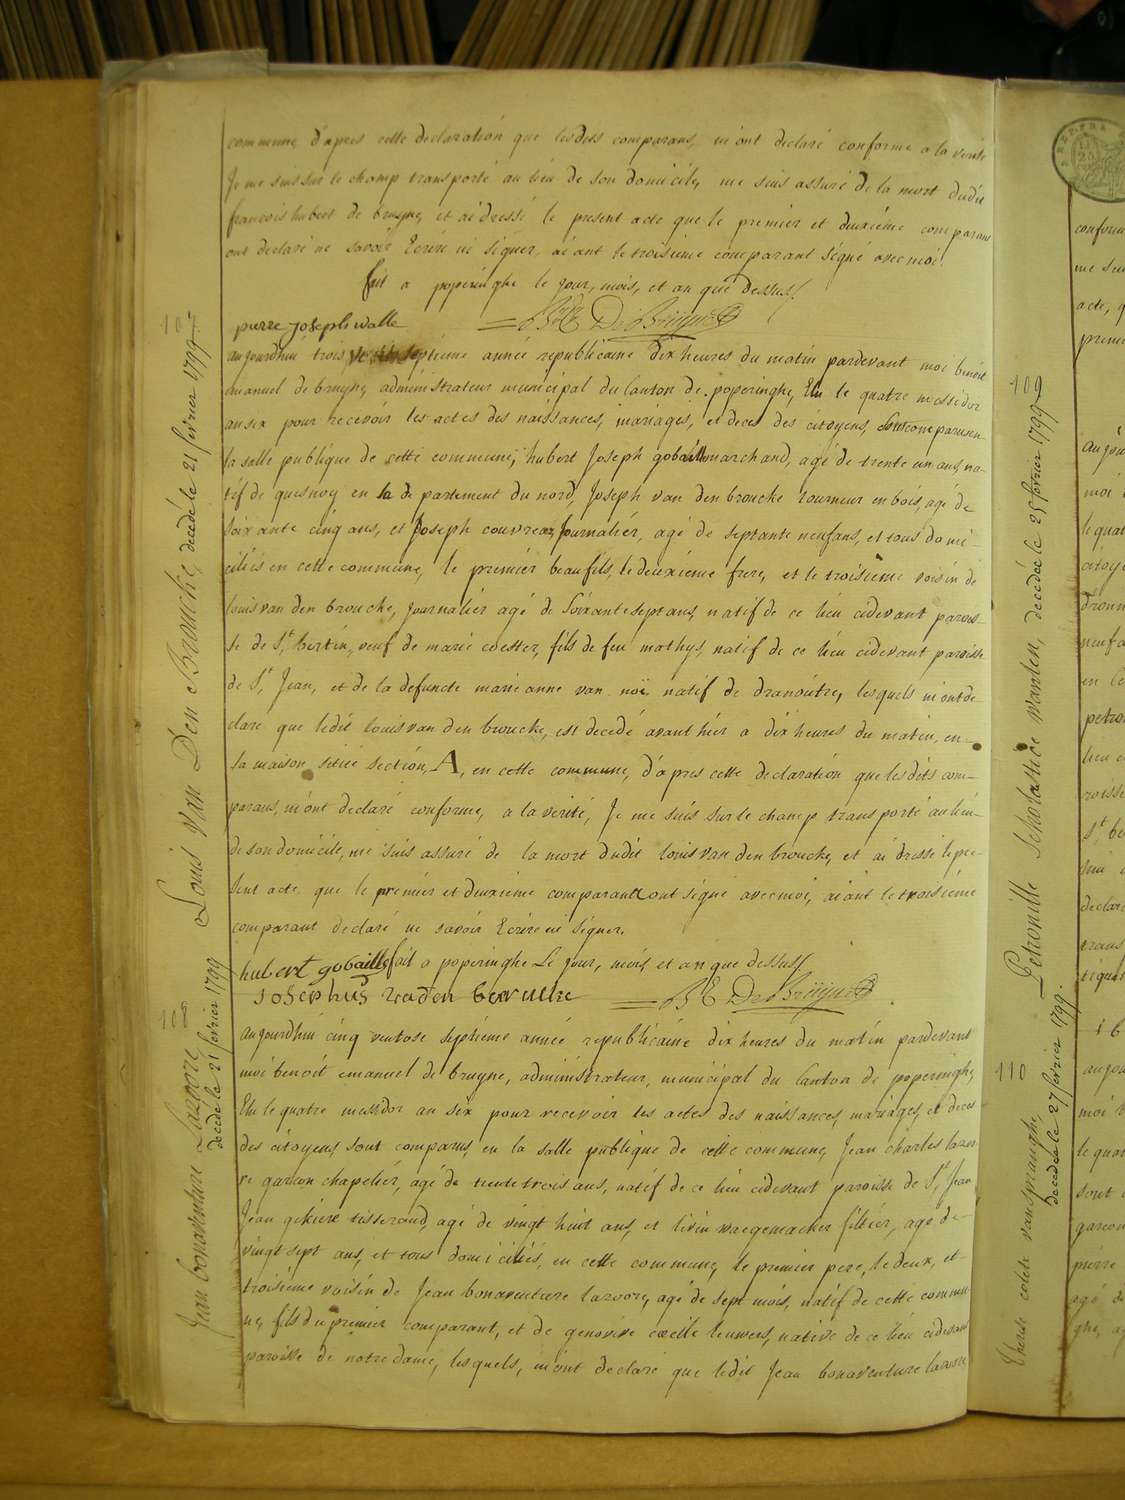 commune, d'apres cette declaration que lesdits comparans, m'ont declaré conforme a la verité
Je me suis sur le champ transporté au lieu de son domicile, me suis assuré de la mort dudit
francois hubert de bruyne, et ai dressé le present acte que le premier et deuxième comparans
ont declaré ne savoir Ecrire ni signer, aiant le troisieme comparant signé avec moi.
fait a poperinghe le jour, mois, et an que dessus.
pierre joseph walle
BE De Bruyne
107
Louis Van Den Broucke, decedé le 21 fevrier 1799
aujourdhui trois septieme année republicaine dix heures du matin pardevant moi benoit
emanuel de bruyne, administrateur municipal du Canton de poperinghe, Elu le quatre messidor
an six pour recevoir les actes des naissances, mariages, et deces des citoyens, sont comparus en
la salle publique de cette commune, hubert Joseph gobaille marchand, agé de trente un ans, na-
tif de quesnoy en la departement du nord, Joseph van den broucke tourneur en bois, agé de
soixante cinq ans, et Joseph couvreur, Journalier, agé de septante neuf ans, et tous domi-
ciliés en cette commune, le premier beau fils, le deuxième frere, et le troisième voisin de
louis van den broucke, journalier agé de Soixante sept ans, natif de ce lieu cidevant parois-
se de St. bertin, veuf de marie coester, fils de feu mathys, natif de ce lieu cidevant paroisse
de St. Jean, et de la defuncte marie anne van noï natif de dranoutre, lesquels m'ont de-
claré que ledit louis van den broucke, est decedé avant hier a dix heures du matin, en
sa maison, sitiée section, A, en cette commune, d'apres cette declaration que les dits com-
parans, m'ont declaré conforme, a la verité, Je me suis sur le champ transporté au lieu
de son domicile, me suis assuré de la mort dudit louis van den broucke, et ai dressé le pre-
sent acte que le premier et deuxieme comparant ont signé avec moi, aiant le troisiéme
comparant declaré ne savoir Ecrire ni signer.
fait a poperinghe Le jour, mois, et an que dessus.
hubert gobaille
Josephus vanden broucke
BE De Bruyne
108
Jean bonaventure Lazoore
decedé le 21 fevrier 1799
aujourdhui cinq ventose septième année republicaine dix heures du matin pardevant
moi benoit emanuel de bruyne, administrateur, municipal du Canton de poperinghe,
Elu le quatre messidor an six pour recevoir les actes des naissances, mariages, et deces
des citoyens, sont comparus, en la salle publique de cette commune, Jean charles lazoo-
re garcon chapelier, agé de trente trois ans, natif de ce lieu cidevant paroisse de St. Jean
Jean gekiere tisserand, agé de vingt huit ans, et livin waegemacker filtier, agé de
vingt sept ans, et tous domiciliés, en cette commune, le premier pere, le deux, et
troisième voisin de Jean bonaventure lazoore, agé de sept mois, natif de cette commu-
ne, fils du premier comparant, et de genovive leuwers, native de ce lieu cidevant
paroisse de notre dame, lesquels, m'ont declaré que ledit Jean bonaventure lazoore
109
Petronille Scholastice vanlen, decedée le 25 fevrier 1799
110
Therese colete vansprangh,
decedée le 27 fevrier 1799.